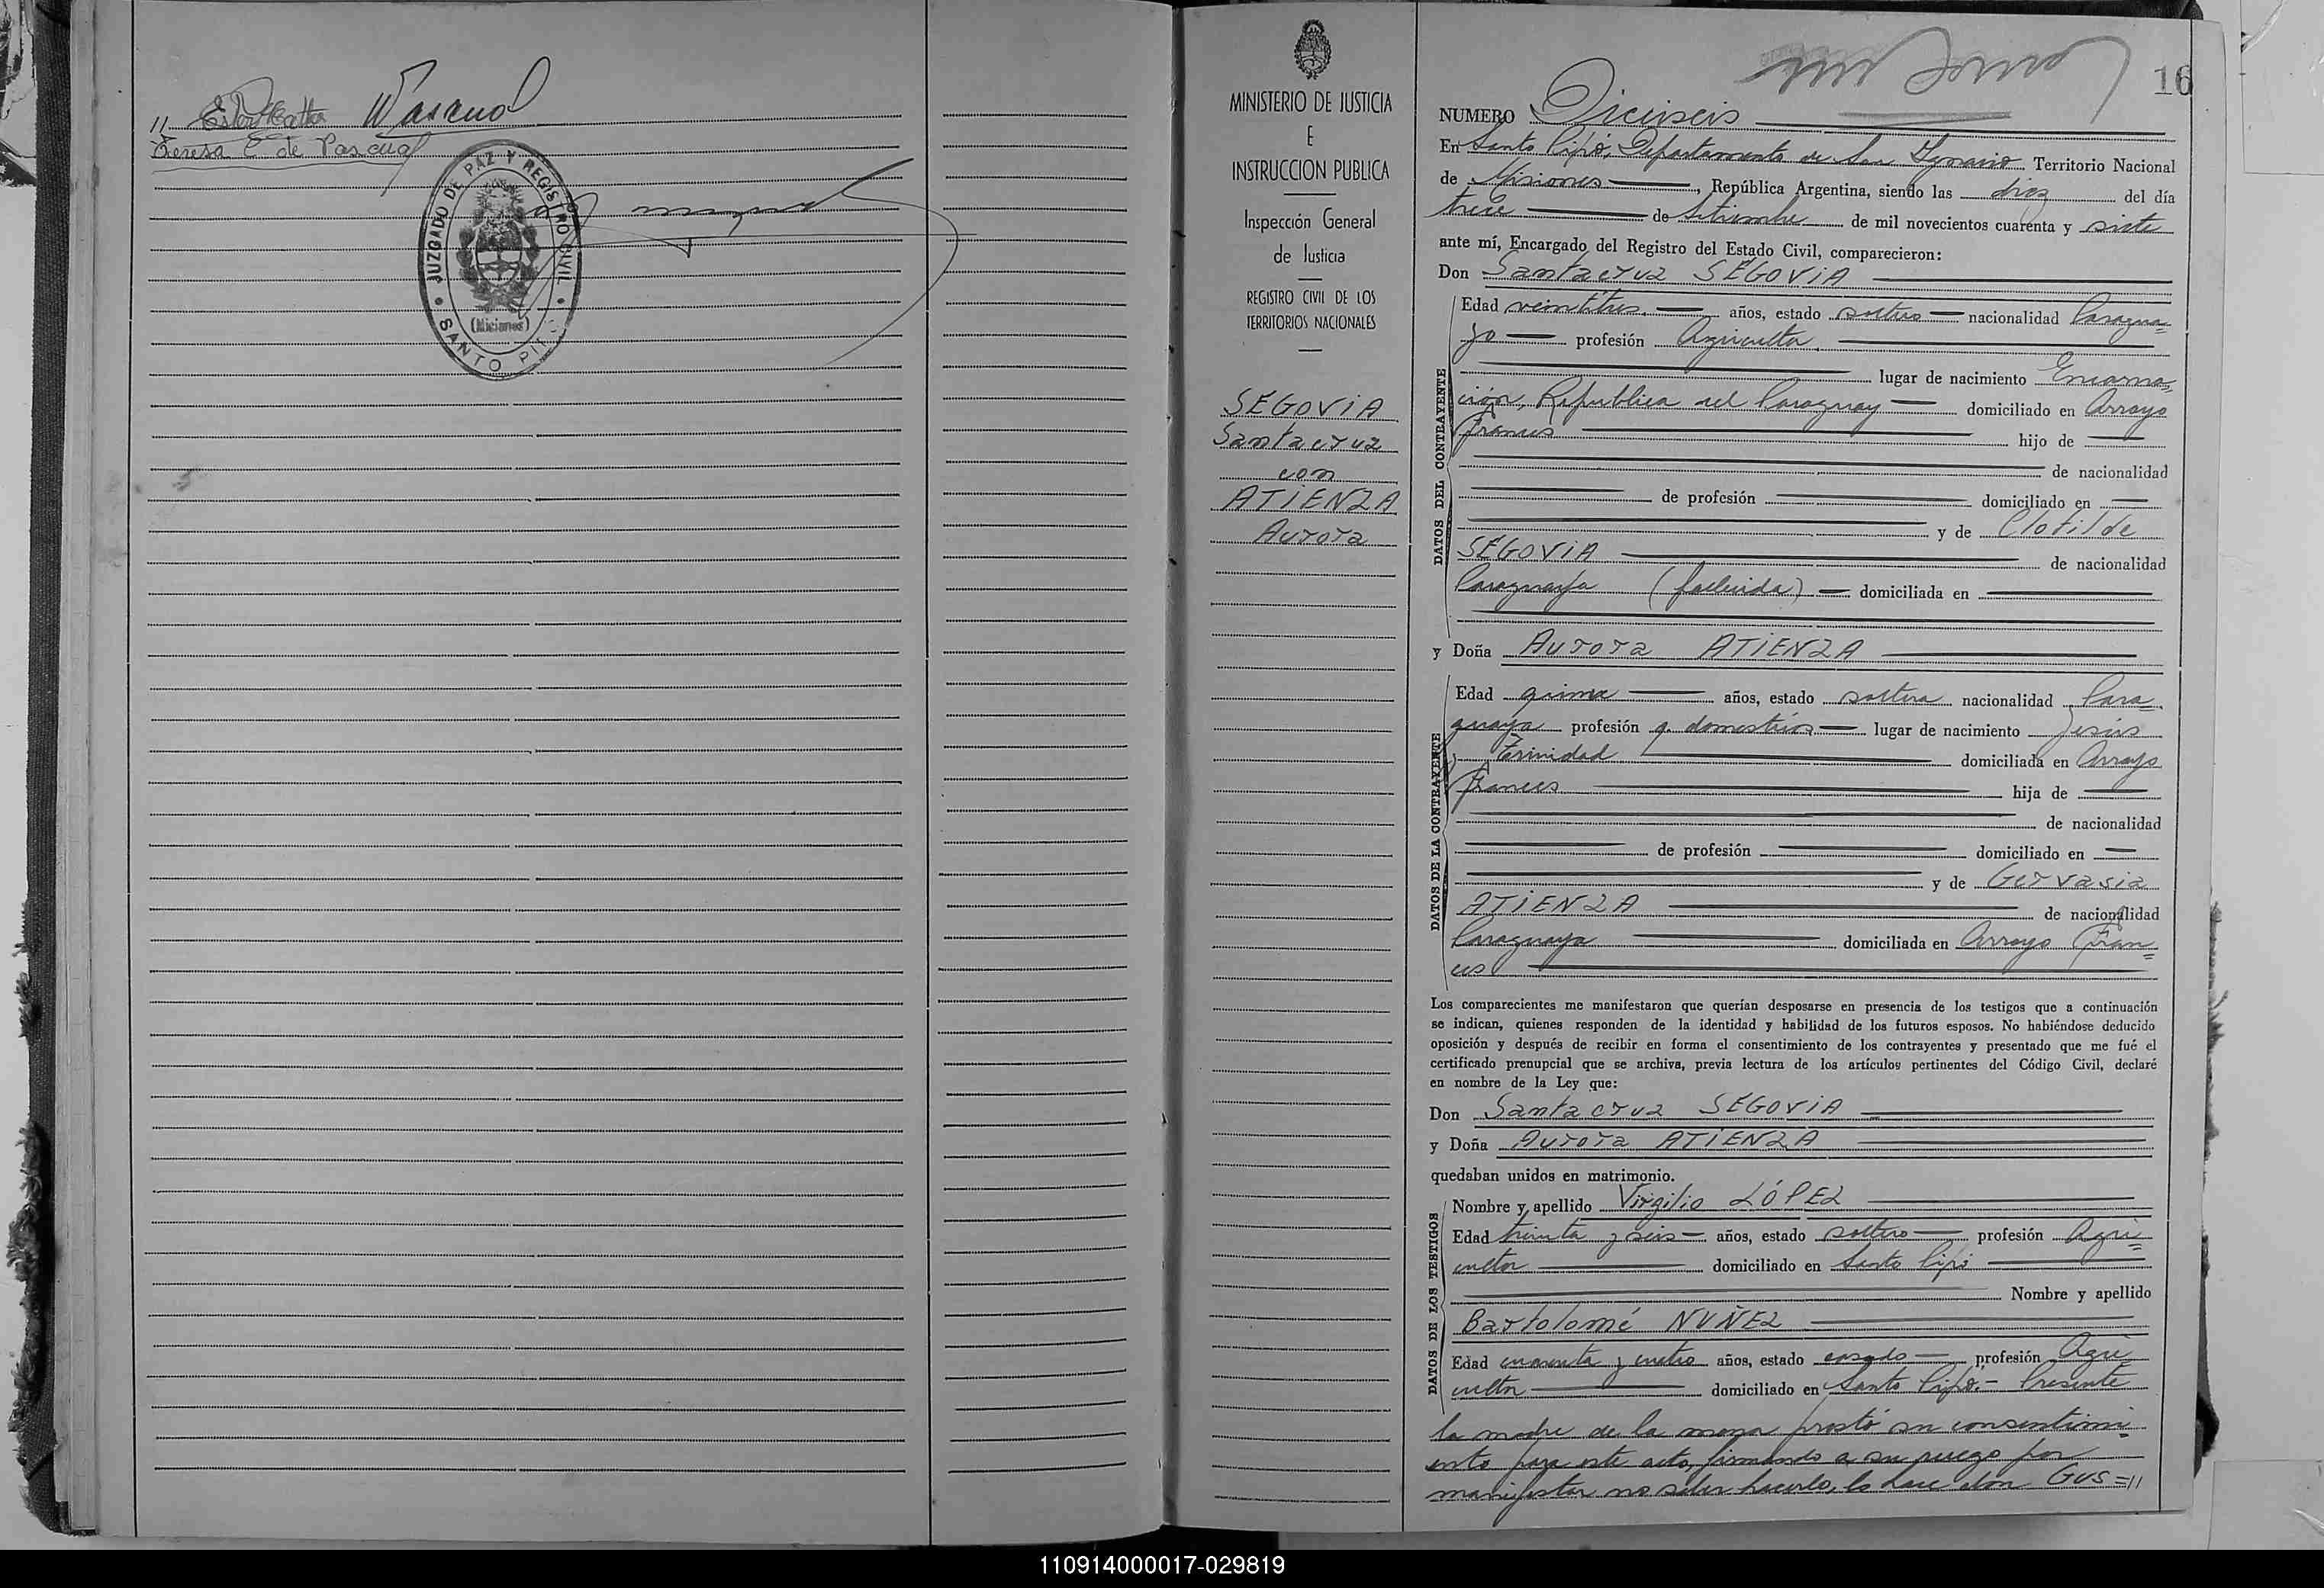 // Pascual
Teresa E de Pascual
JUZGADO DE PAZ Y REGISTRO CIVIL
(Misiones)
SANTO PIPO
MINISTERIO DE JUSTICIA
E
INSTRUCCION PUBLICA
Inspección General
de Justicia
REGISTRO CIVIL DE LOS
TERRITORIOS NACIONALES
SEGOVIA
Santacruz
con
ATIENZA
Aurora
16
NUMERO Dieciseis
En Santo Pipó, Departamento de San Ygnacio Territorio Nacional
de Misiones, República Argentina, siendo las diez del día
trece de Setiembre de mil novecientos cuarenta y siete
ante mí, Encargado del Registro del Estado Civil, comparecieron:
Don Santacruz SEGOVIA
DATOS DEL CONTRAYENTE
Edad veintitres años, estado soltero nacionalidad Paragua=
yo profesión Agricultor
lugar de nacimiento Encarna=
ción, Republica del Paraguay domiciliado en Arroyo
Frances hijo de
de nacionalidad
de profesión domiciliado en
y de Clotilde
SEGOVIA de nacionalidad
Paraguaya (fallecida) domiciliada en
y Doña Aurora ATIENZA
DATOS DE LA CONTRAYENTE
Edad quince años, estado soltera nacionalidad Para=
guaya profesión q. domesticos lugar de nacimiento Jesús
y Trinidad domiciliada en Arroyo
Frances hija de
de nacionalidad
de profesión domiciliado en
y de Gervasia
ATIENZA de nacionalidad
Paraguaya domiciliada en Arroyo Fran=
ces
Los comparecientes me manifestaron que querían desposarse en presencia de los testigos que a continuación
se indican, quienes responden de la identidad y habilidad de los futuros esposos. No habiéndose deducido
oposición y después de recibir en forma el consentimiento de los contrayentes y presentado que me fué el
certificado prenupcial que se archiva, previa lectura de los artículos pertinentes del Código Civil, declaré
en nombre de la Ley que:
Don Santacruz SEGOVIA
y Doña Aurora ATIENZA
quedaban unidos en matrimonio.
DATOS DE LOS TESTIGOS
Nombre y apellido Virgilio LÓPEZ
Edad treinta y seis años, estado soltero profesión Agri=
cultor domiciliado en Santo Pipó
Nombre y apellido
Bartolomé NUÑEZ
Edad cuarenta y cuatro años, estado casado profesión Agri
cultor domiciliado en Santo Pipó.- Presente
la madre de la menor prestó su consentimi=
ento para este acto, firmando a su ruego por
manifestar no saber hacerlo, lo hace don GUS=//
110914000017-029819